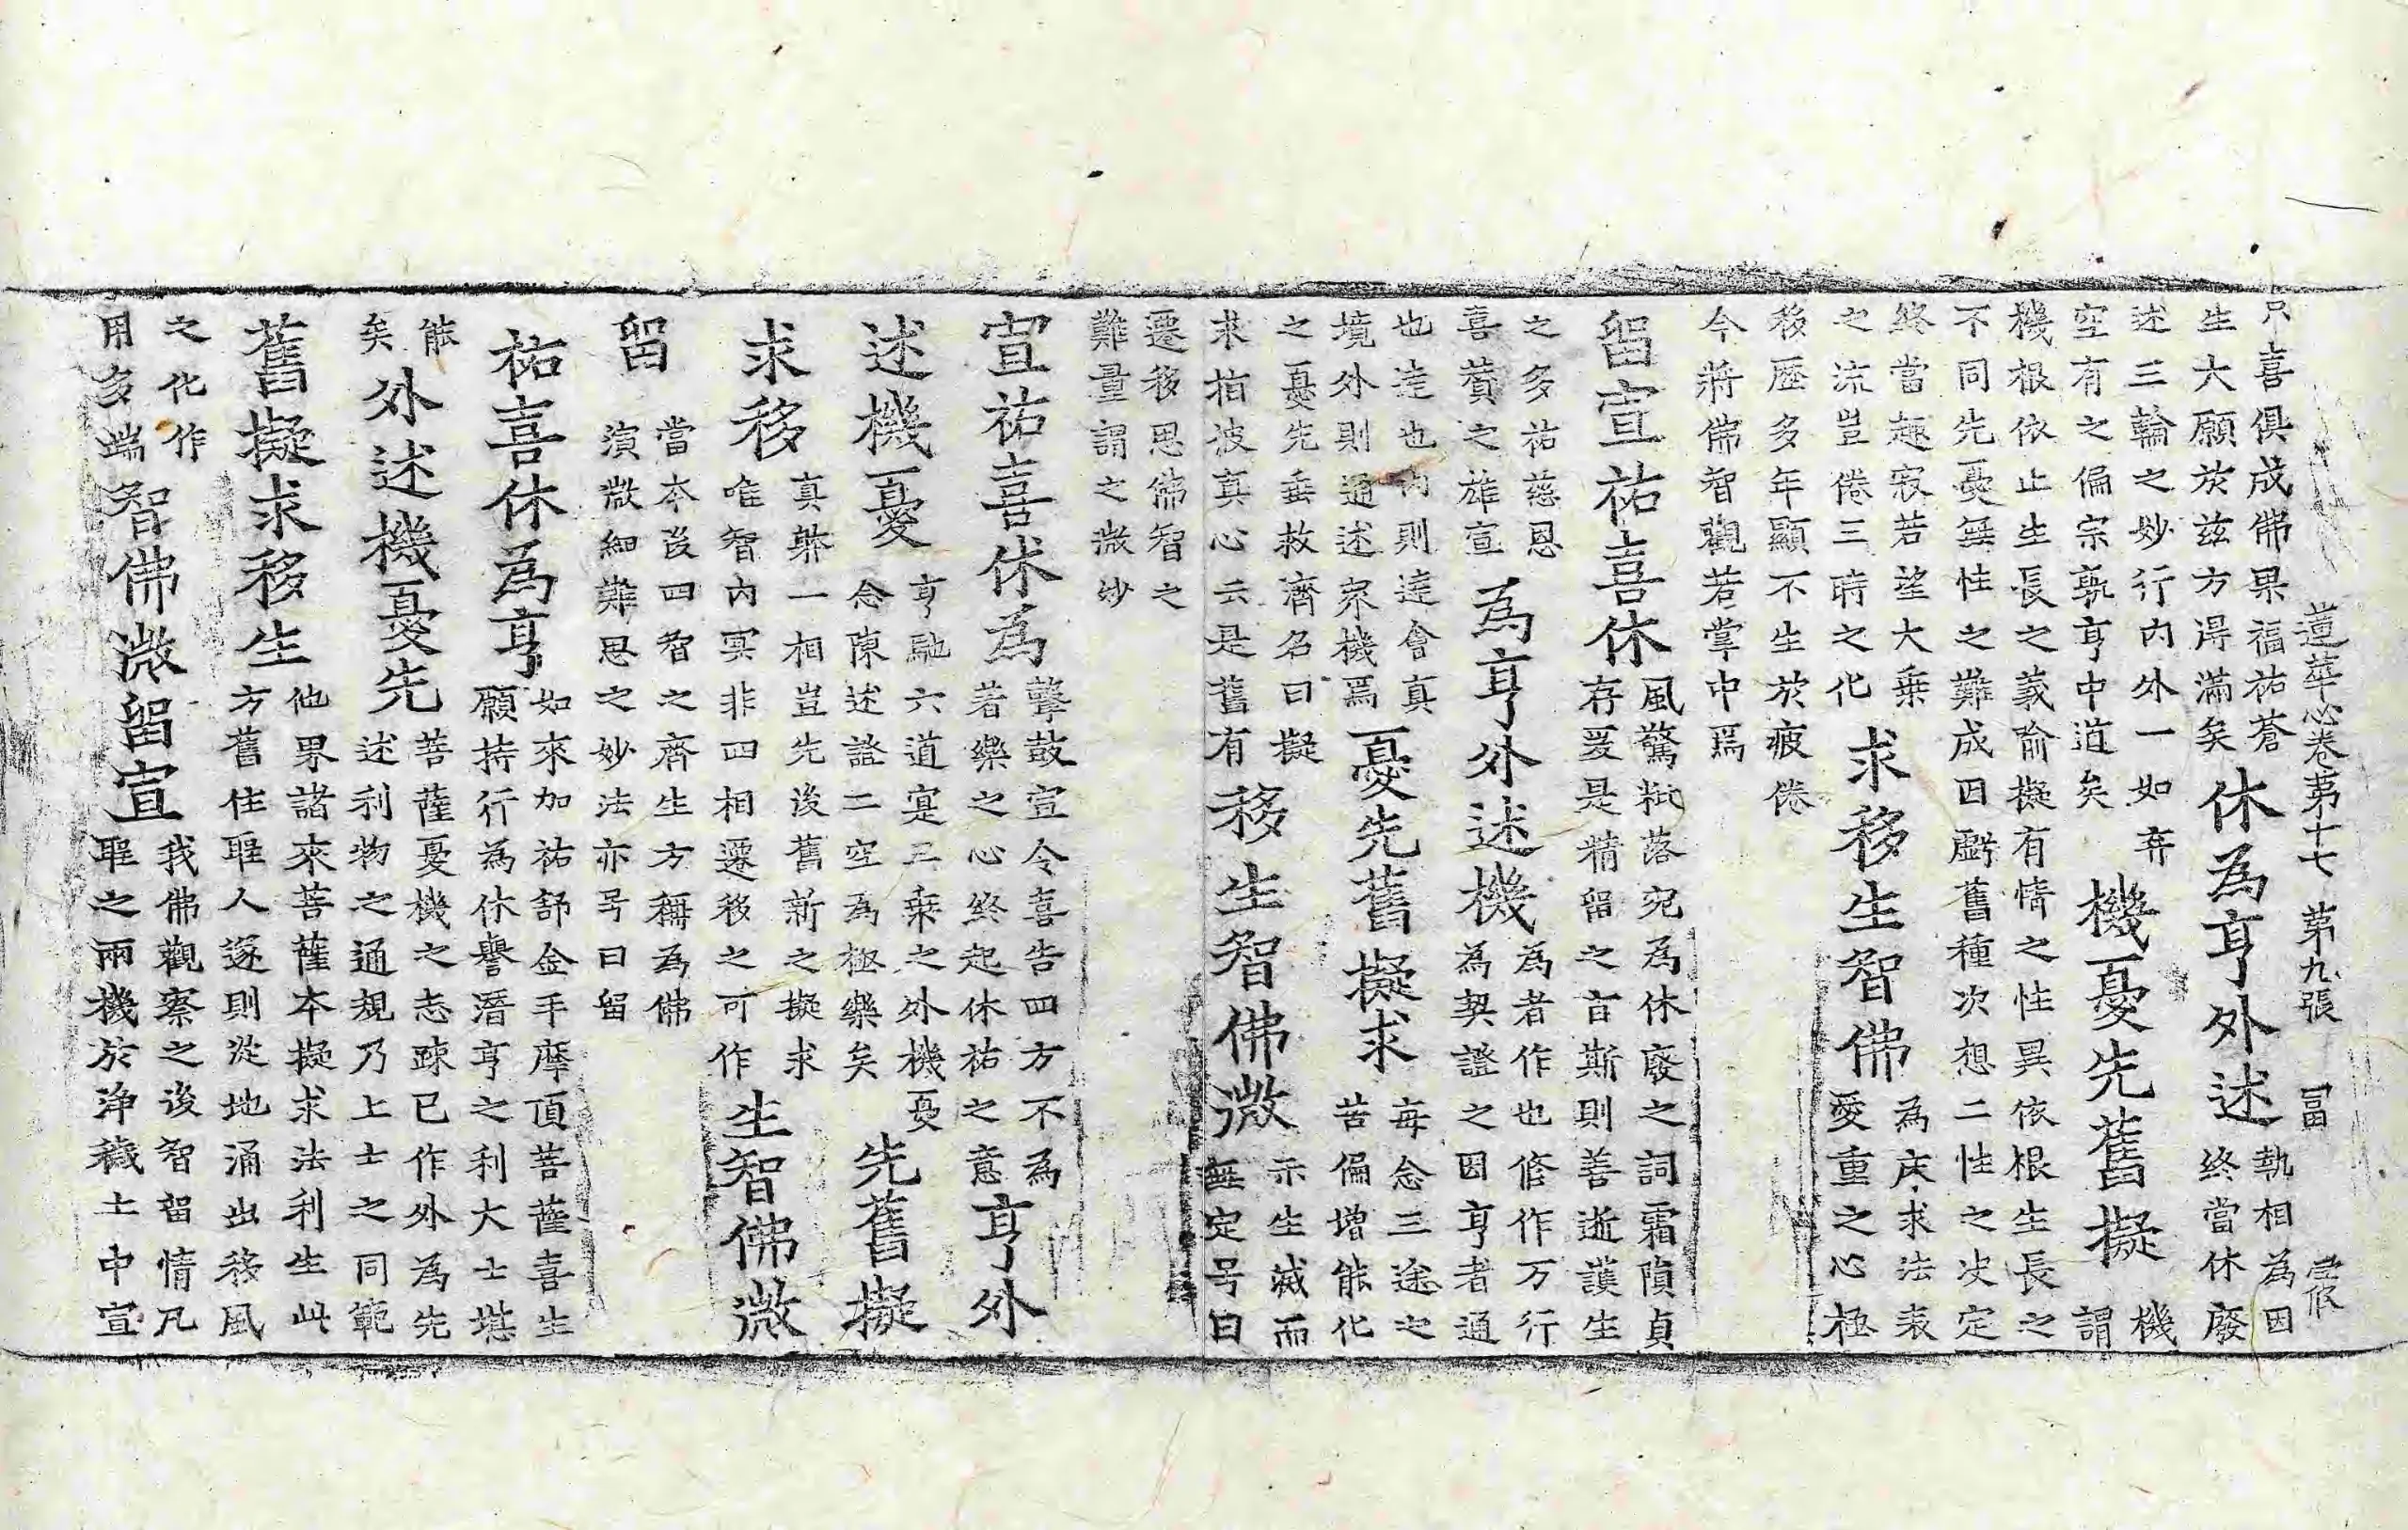 蓮華心卷第十七 第九張 冨
只喜俱成佛果福祐蒼
生大願於兹方得滿矣
休為亨外述
執相為因
終當休廢
述三輪之妙行內外一如弃
空有之偏宗執亨中道矣
機憂先舊擬
機
謂
機根依止生長之義喻擬有情之性異依根生長之
不同先憂無性之難成因虧舊種次想二性之决定
終當趣寂若望大乗
之流豈倦三時之化
求移生智佛
為求法衷
愛重之心極
移歷多年顯不生於疲倦
今將佛智觀若掌中焉
留宣祐喜休
風驚籜落宛為休廢之詞霜隕貞
存爰是精留之言斯則善逝護生
之多祐慈恩
喜賛之雄宣
為亨外述機
為者作也修作万行
為契證之因亨者通
也達也內則達會真
境外則通述眾機焉
憂先舊擬求
每念三途之
苦偏增能化
之憂先垂救濟名曰擬
求指彼真心云是舊有
移生智佛微
示生滅而
無定号曰
遷移思佛智之
難量謂之微妙
宣祐喜休為
聲鼓宣令喜告四方不為
若樂之心終起休祐之意
亨外
述機憂
亨馳六道寔三乗之外機憂
念陳述證二空為極樂矣
先舊擬
求移
真躰一相豈先後舊新之擬求
唯智內冥非四相遷移之可作
生智佛微
留
當本四智之齊生方稱為佛
演微細難思之妙法亦号曰留
祐喜休為亨
如來加祐舒金手摩頂菩薩喜生
願持行為休譽潛亨之利大士堪
能
矣
外述機憂先
菩薩憂機之志踈已作外為先
述利物之通規乃上士之同範
舊擬求移生
他果諸來菩薩本擬求法利生此
方舊住聖人遂則從地涌出移風
之化作
用多端
智佛微留宣
我佛觀察之後智留情凡
聖之兩機於淨穢土中宣